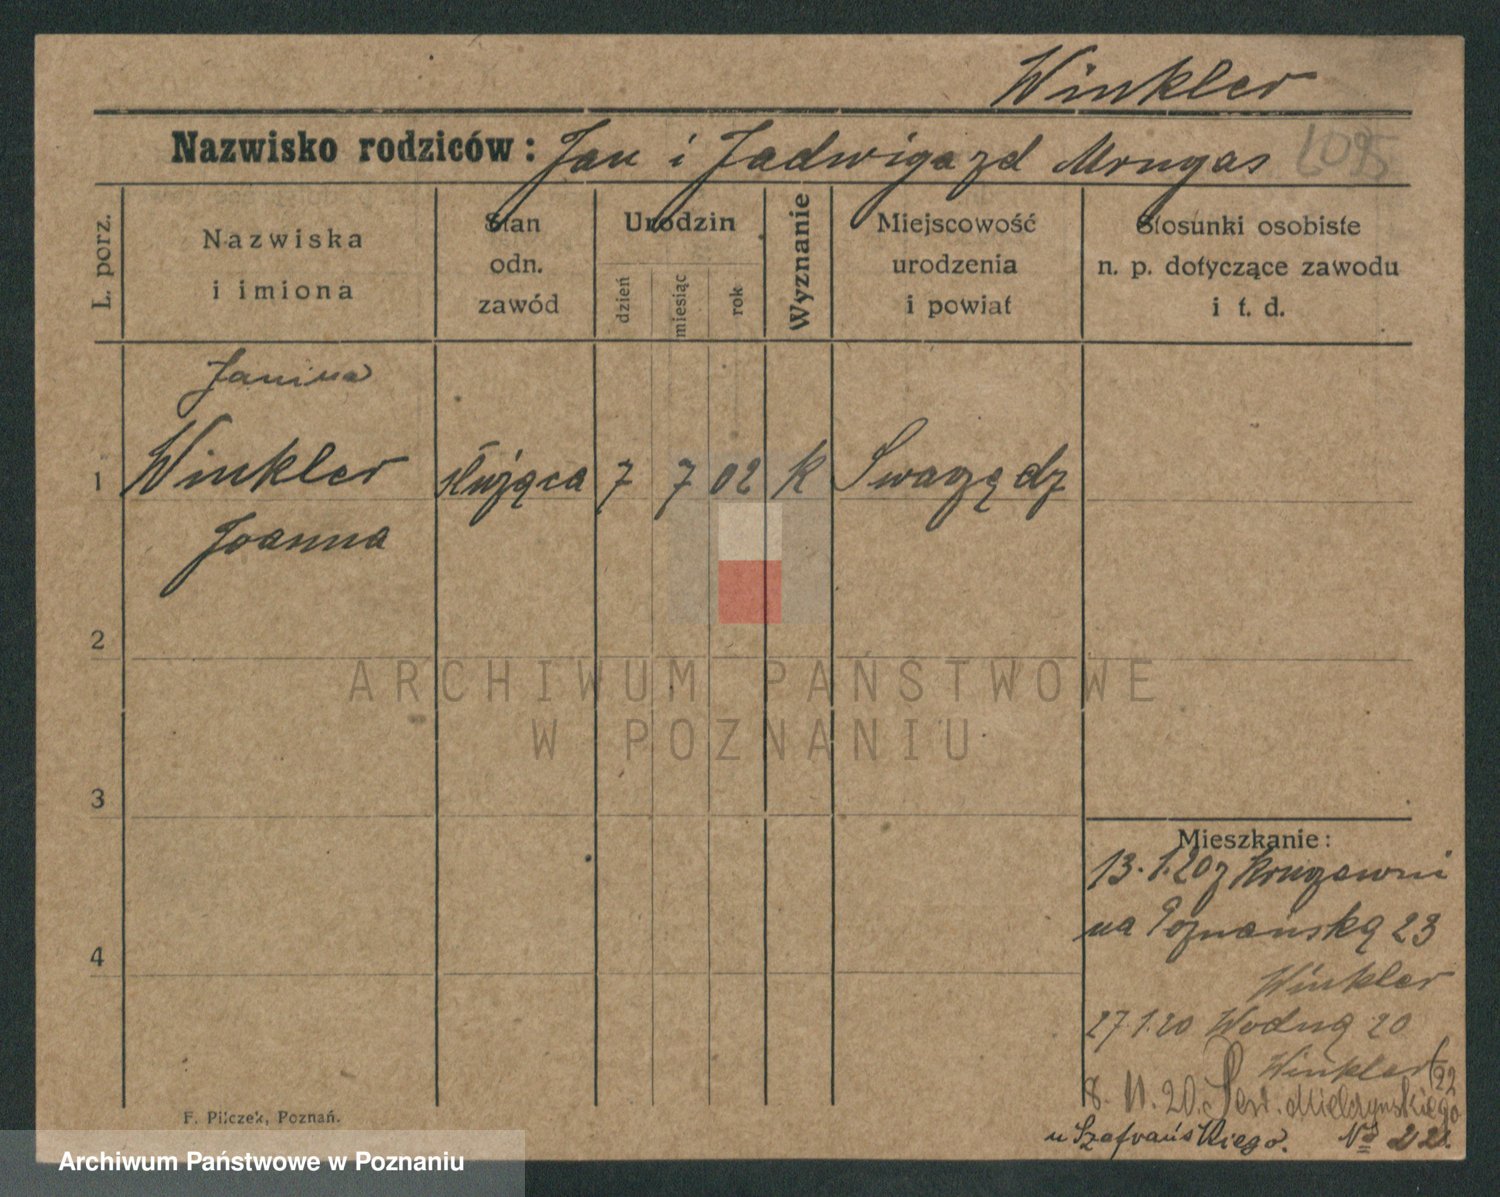 Winkler
Nazwisko rodziców: Jan i Jadwiga zd Mrugas
6095
L. porz.
Nazwiska
i imiona
Stan
odn.
zawód
Urodzin
dzień
miesiąc
rok
Wyznanie
Miejscowość
urodzenia
i powiat
Stosunki osobiste
n. p. dotyczące zawodu
i t. d.
Janina
1 Winkler służąca 7 7 02 k Swazędz
Joanna
2
3
4
ARCHIWUM PAŃSTWOWE
W POZNANIU
Mieszkanie:
13.1.20 z
na Poznańską 23
Winkler
27.1.20 Wodną 20
Winkler
8. 11. 20. Sew. Mielżynskiego 22
u Szafrańskiego.
F. Pilczek, Poznań.
Archiwum Państwowe w Poznaniu